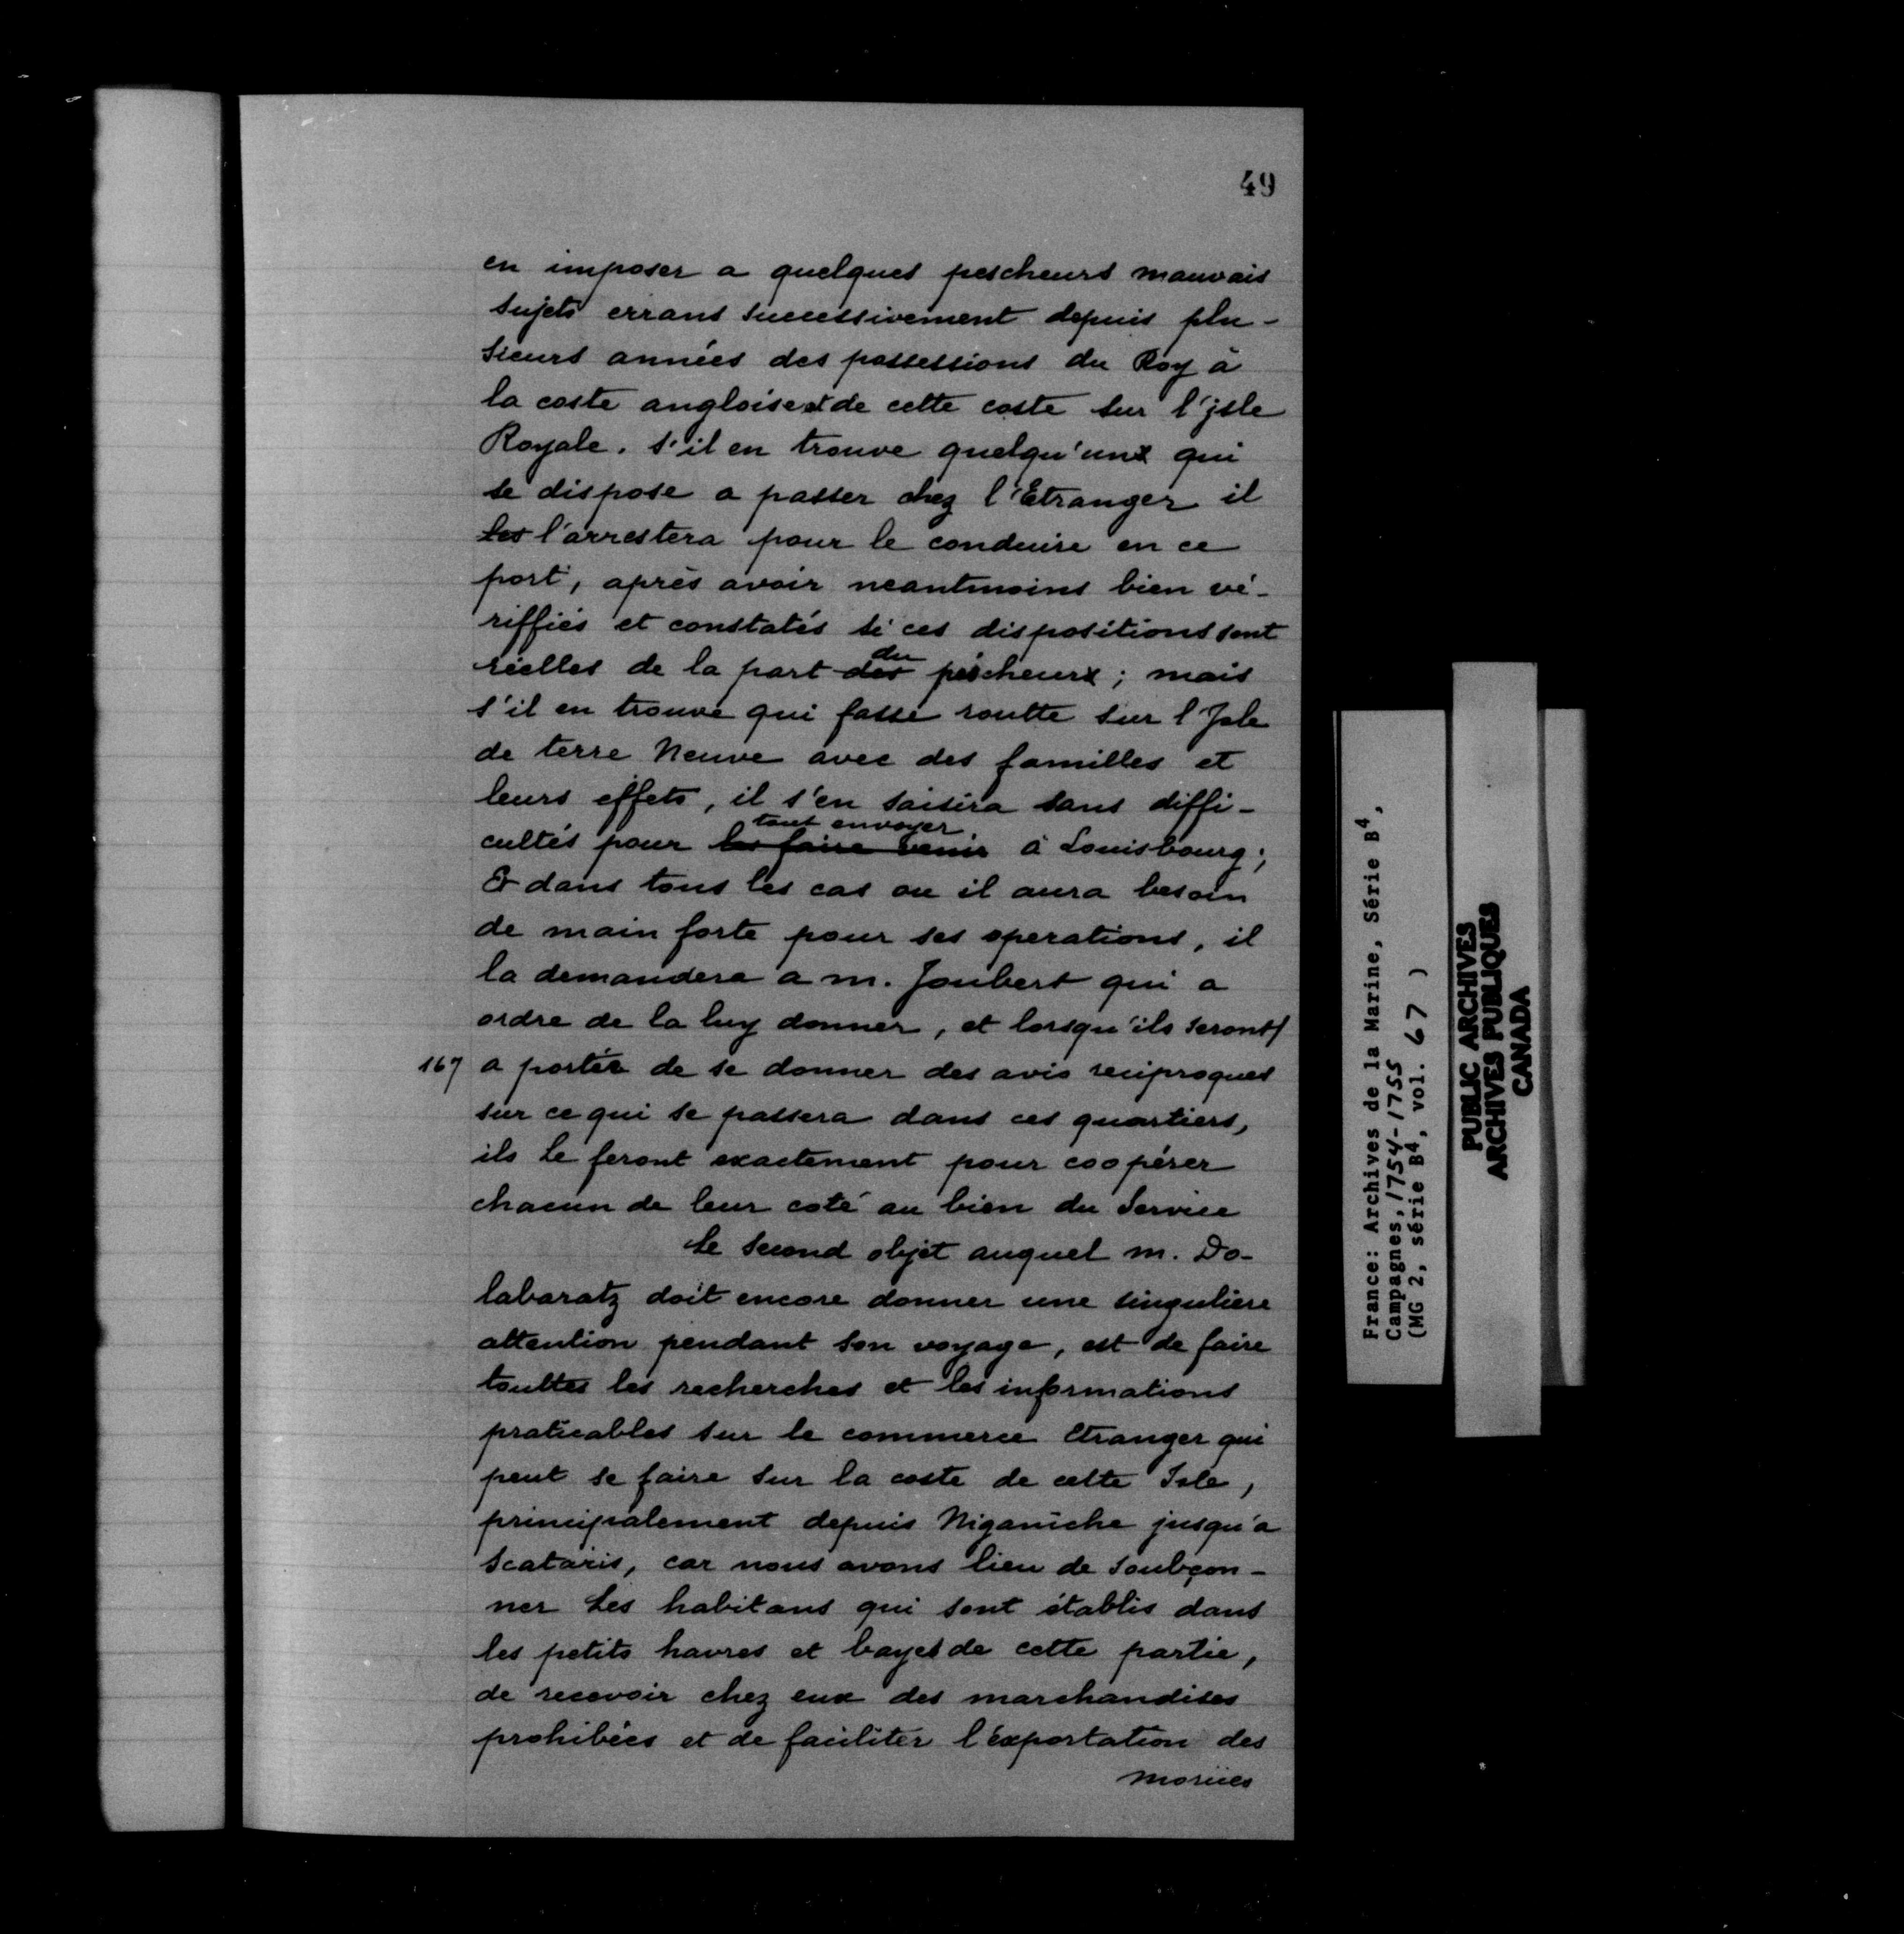 49
en imposer a quelques pescheurs mauvais
sujets errans successivement depuis plu-
sieurs années des possessions du Roy à
la coste angloise et de cette coste sur l'jsle
Royale. s'il en trouve quelqu'uns qui
se dispose a passer chez l'Etranger il
les l'arrestera pour le conduire en ce
port, après avoir neantmoins bien vé-
riffiés et constatés si ces dispositions sont
réelles de la part des du pêcheurs; mais
s'il en trouve qui fasse routte sur l'Jsle
de terre Neuve avec des familles et
leurs effets, il s'en saisira sans diffi-
cultés pour les faire venir tout envoyer à Louisbourg;
& dans tous les cas ou il aura besoin
de main forte pour ses operations, il
la demandera a m. Joubert qui a
ordre de la luy donner, et lorsqu'ils seront/
167 a portée de se donner des avis reciproques
sur ce qui se passera dans ces quartiers,
ils le feront exactement pour coopérer
chacun de leur coté au bien du Service
Le second objet auquel m. Do-
labaratz doit encore donner une singuliere
attention pendant son voyage, est de faire
touttes les recherches et les informations
praticables sur le commerce Etranger qui
peut se faire sur la coste de cette Isle,
principalement depuis Niganiche jusqu'a
Scataris, car nous avons lieu de soubçon-
ner Les habitans qui sont établis dans
les petits havres et bayes de cette partie,
de recevoir chez eux des marchandises
prohibées et de faciliter l'exportation des
moriies
France: Archives de la Marine, Série B4,
Campagnes, 1754-1755
(MG 2, série B4, vol. 67 )
PUBLIC ARCHIVES
ARCHIVES PUBLIQUES
CANADA